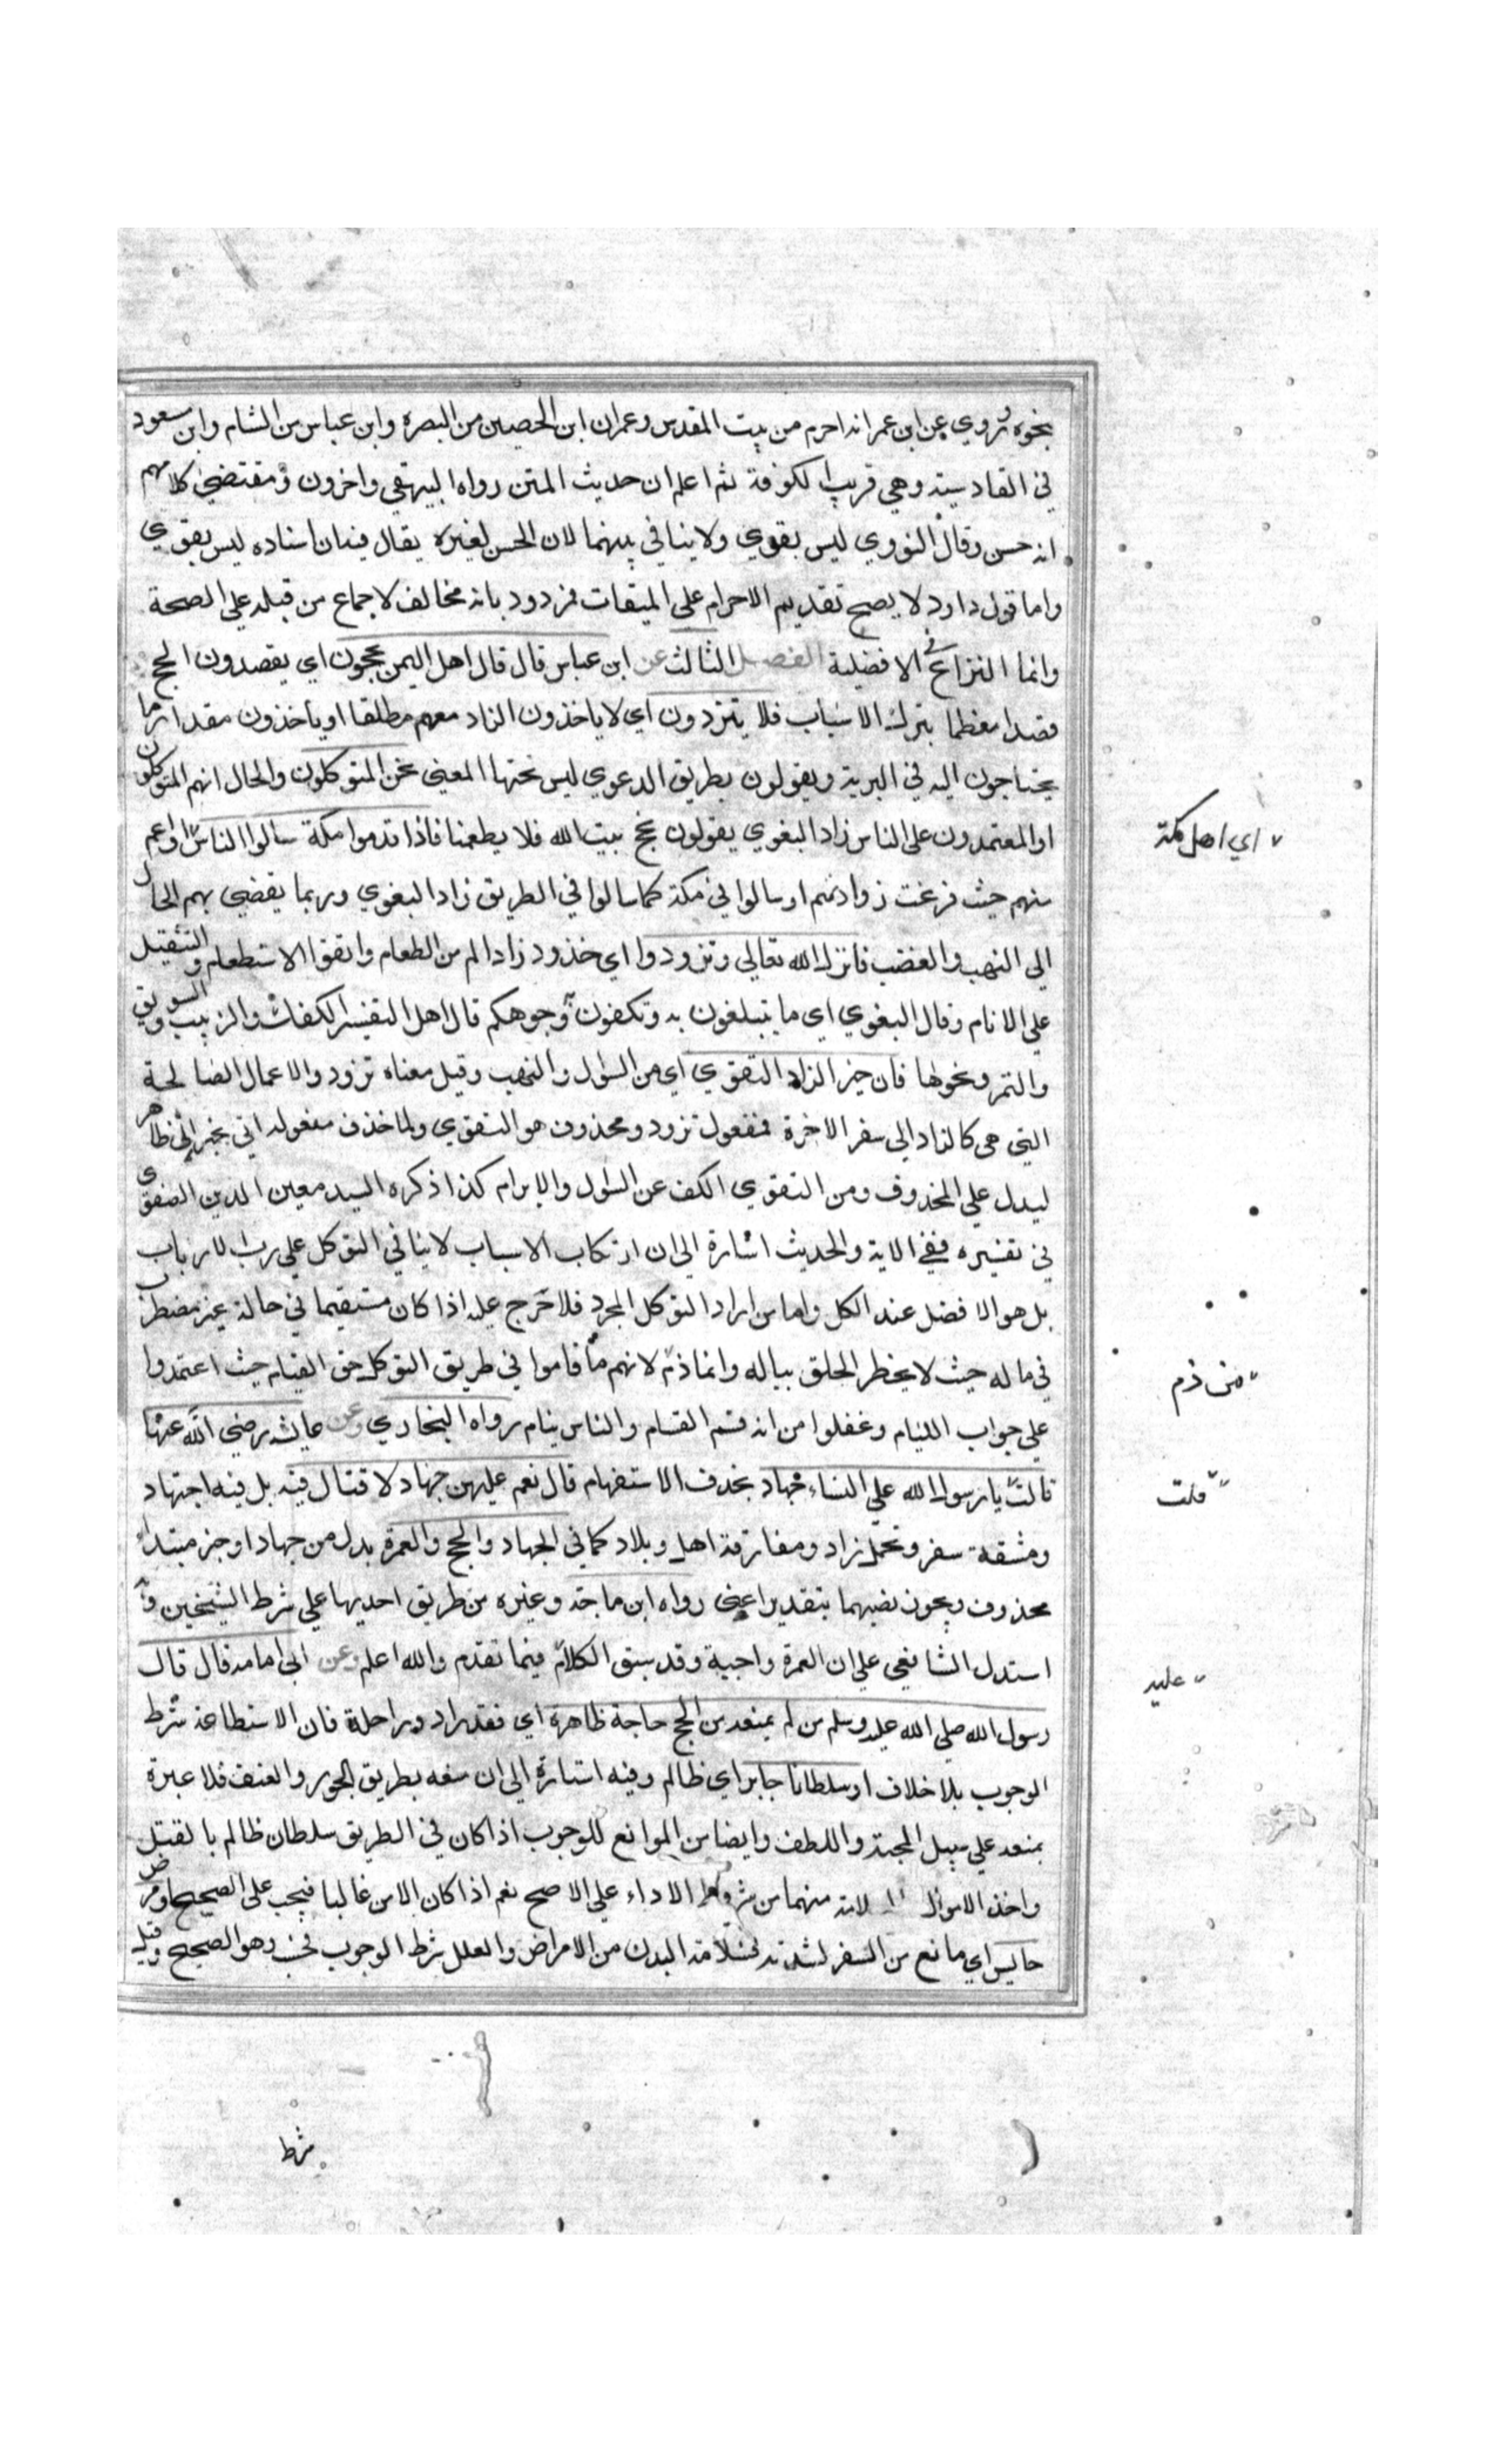 بنحوه وروي عن ابن عمر انه احرم من بيت المقدس وعمران ابن الحصين من البصره وابن عباس من الشام وابن مسعود
في القادسية وهي قريب الكوفة ثم اعلم ان حديث المتن رواه البيهقي واخرون ومقتضي كلامهم
انه حسن وقال النووي ليس بقوي ولا ينافي بينهما لان الحسن لغيره يقال فيه ان اسناده ليس بقوي
واما قول داود لا يصح تقديم الاحرام على الميقات فمردود بانه مخالف لاجماع من قبله علي الصحة
وانما النزاع في الافضلية الفصل الثالث عن ابن عباس قال قال اهل اليمن يحجون اي يقصدون الحج
قصدا معظما بترك الاسباب فلا يتزودون اي لا ياخذون الزاد معهم مطلقا او ياخذون مقدار ما
يحتاجون اليه في البرية ويقولون بطريق الدعوي ليس تحتها المعني نحن المتوكلون والحال انهم المتوكلون
او المعتمدون على الناس زاد البغوي يقولون نحج بيت الله فلا يطعمنا فاذا قدموا مكة سالوا الناس او اعم
منهم حيث فرغت زوادتهم او سالوا في مكة كما سالوا في الطريق زاد البغوي وربما يفضي بهم الحال
الي النهب والغضب فانزل الله تعالي وتزودوا اي خذوا زادا لم من الطعام واتقوا الاستطعام والتثقيل
علي الانام وقال البغوي اي ما تتبلغون به وتكفون وجوهكم قال اهل التفسير الكفات والزبيب والسويق
والتمر ونحوها فان خير الزاد التقوي اي من السؤل والنهب وقيل معناه تزودوا الاعمال الصالحة
التي هي كالزاد الي سفر الاخرة فمفعول تزودو محذوف هو التقوي ولما حذف مفعوله اتي بخبر ان ظاهر
ليدل علي المحذوف ومن التقوي الكف عن السؤل والابرام كذا ذكره السيد معين الدين الصفوي
في تفسيره ففي الاية والحديث اشارة الي ان ارتكاب الاسباب لا ينافي التوكل علي رب الارباب
بل هو الافضل عند الكل واما من اراد التوكل المجرد فلا حرج عليه اذا كان مستقيما في حالة غير مضطرب
في ماله حيث لا يخطر الخلق بباله وانما ذم لانهم ما قاموا في طريق التوكل حق القيام حيث اعتمدوا
علي جواب اللئام وغفلوا من انه قسم القسام والناس نيام رواه البخاري وعن عايشه رضي الله عنها
قالت يا رسول الله علي النساء جهاد بحذف الاستفهام قال نعم عليهن جهاد لا قتال فيه بل فيه اجتهاد
ومشقة سفر وتحمل زاد ومفارقة اهل وبلاد كما في الجهاد والحج والعمرة بدل من جهاد او خبر مبتداء
محذوف ويجوز نصبهما بتقدير اعني رواه ابن ماجة وغيره من طريق احديها علي شرط الشيخين و
استدل الشافعي علي ان العمرة واجبة وقد سبق الكلام فيما تقدم والله اعلم وعن ابي امامه قال قال
رسول الله صلي الله عليه وسلم من لم يمنعه من الحج حاجة ظاهرة اي فقد زاد وراحلة فان الاستطاعة شرط
الوجوب بلا خلاف او سلطانا جاير اي ظالم وفيه اشارة الي ان منعه بطريق الجور والعنف فلا عبرة
بمنعه علي سبيل المحبة واللطف وايضا من الموانع للوجوب اذا كان في الطريق سلطان ظالم بالقتل
واخذ الاموال لانه منهما من شروط الاداء علي الاصح نعم اذا كان الامن غالبا فيجب على الصحيح او مرض
حابس اي مانع من السفر لشدته فسلامة البدن من الامراض والعلل شرط الوجوب فحسب وهو الصحيح وقيل
شرط
اي اهل مكة
من ذم
قلت
عليه